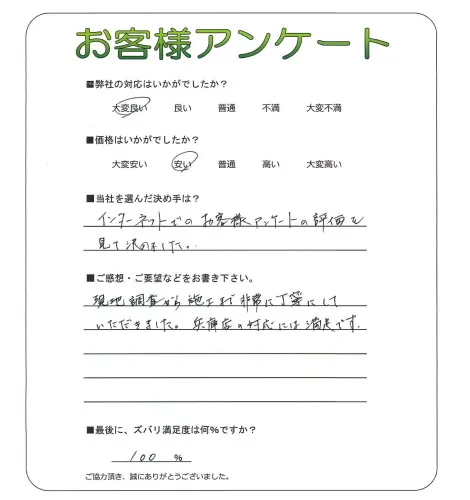 お客様アンケート
■弊社の対応はいかがでしたか？
大変良い 良い 普通 不満 大変不満
■価格はいかがでしたか？
大変安い 安い 普通 高い 大変高い
■当社を選んだ決め手は？
インターネットでのお客様アンケートの評価を
見て決めました。
■ご感想・ご要望などをお書き下さい。
現地調査から施工まで非常に丁寧にして
いただきました。兵庫店の対応には満足です。
■最後に、ズバリ満足度は何％ですか？
100 %
ご協力頂き、誠にありがとうございました。